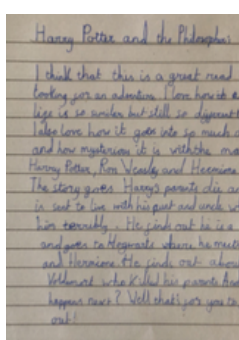 Harry Potter and the Philosopher
I think that this is a great read
looking for an adventure I love how th
life is so similar but still so different
I also love how it goes into so much d
and how mysterious it is with the ma
Harry Potter, Ron Weasly and Hermione
The story goes Harry's parents die an
is sent to live with his aunt and uncle w
him terribly. He finds out he is a
and goes to Hogwarts where he meets
and Hermione. He finds out abou
Voldemort who killed his parents
happens next? Well that's for you to
out!